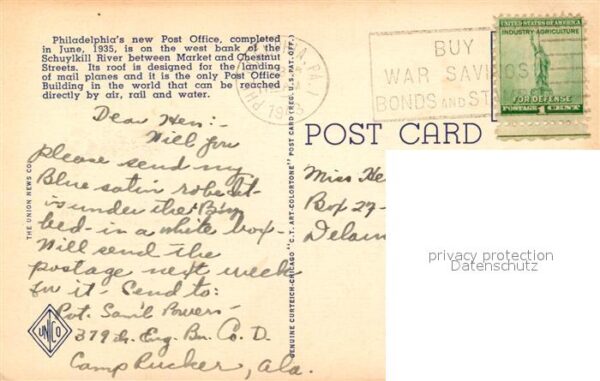 Philadelphia's new Post Office, completed
in June, 1935, is on the west bank of the
Schuylkill River between Market and Chestnut
Streets. Its roof is designed for the landing
of mail planes and it is the only Post Office
Building in the world that can be reached
directly by air, rail and water.
Dear Hen:-
Will you
please send my
Blue satin robe. It-
is under the Big
bed - in a white box -
Will send the
postage next week
for it - Send to:
Pvt. Sam'l Powers -
379th Eng. Bn. Co. D.
Camp Rucker, Ala.
THE UNION NEWS CO.
UN CO
GENUINE CURTEICH-CHICAGO "C.T. ART-COLORTONE" POST CARD (REG. U.S. PAT. OFF.)
PA.
1943
BUY
WAR SAVINGS
BONDS AND ST
UNITED STATES OF AMERICA
INDUSTRY-AGRICULTURE
FOR DEFENSE
POSTAGE 1 CENT
POST CARD
Miss He
Box 27-
Delan
privacy protection
Datenschutz